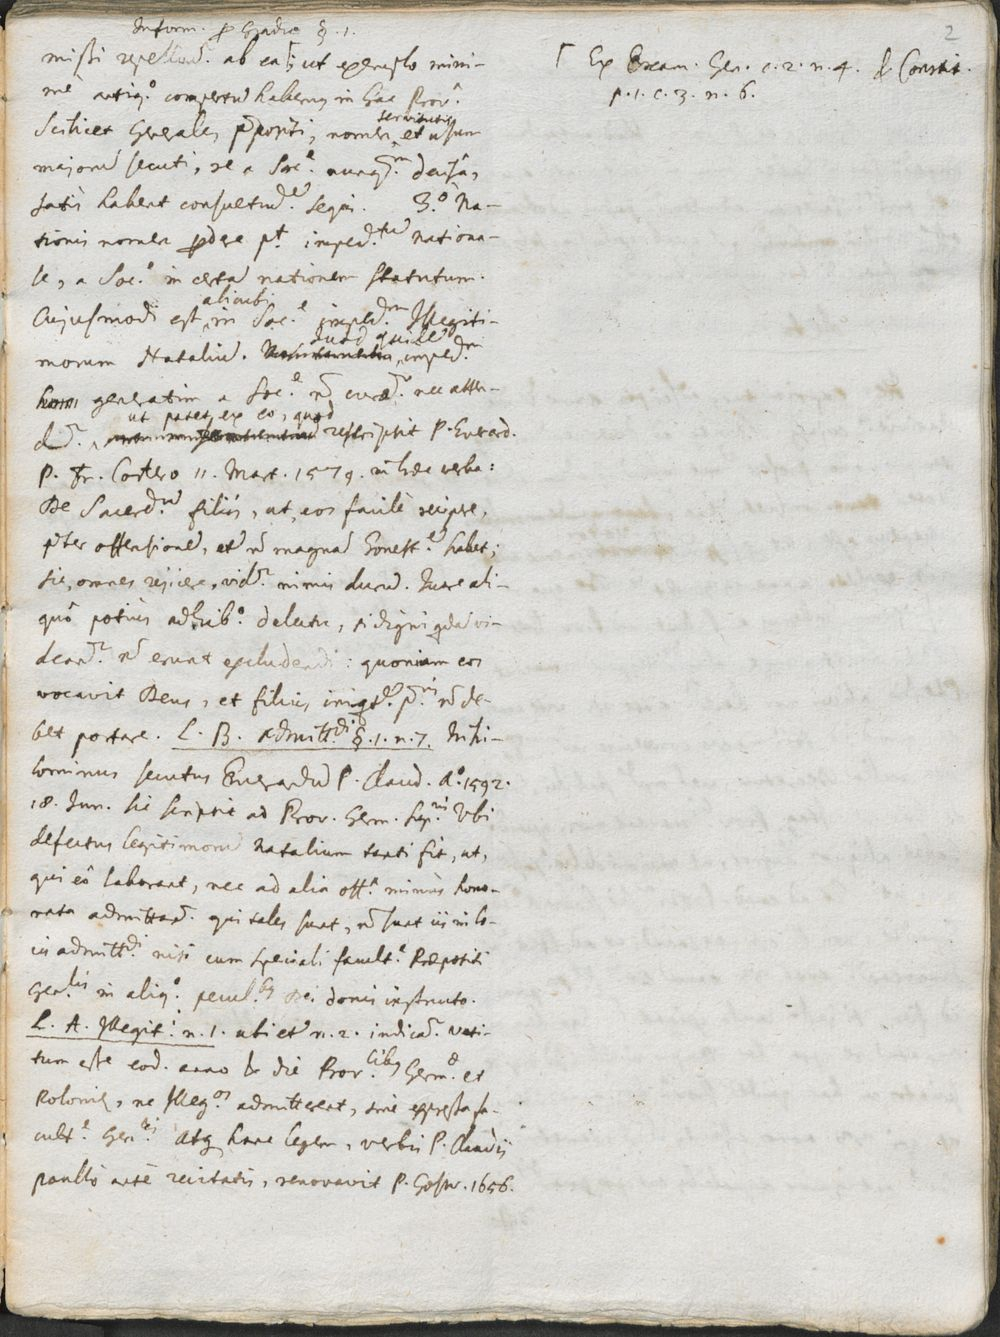 Inform. p Gradu §. 1.
2
missi repellun͂. ab ea⌈; ut exemplo mini-
me antiq.º compertu̅ habemus in hac Prov.ª
Scilicet Generales p̅positi, nomen, servitutis et usum
majoru̅ secuti, se a Soc.e nunq.m
satis habent consuetud.e segui. 3.º Na-
tionis nomen prodere pt. imped.tu nationa-
le, a Soc.e in certa̅ nationem statutum.
Cujusmodi est alicubi in Soc.e imped.m Illegiti-
morum Nataliu̅. quod quide̅ imped.m
generatim a Soc.e n̅ curat.r nec atten-
dit.r ut patet ex eo, quod rescripsit P. Everard.
P. Fr. Costero 11. Mart. 1579. in hæc verba:
De Sacerd.u̅ filiis, ut, eos facile recipere,
p̅ter offensione̅, et n̅ magna̅ honest.e̅ habet;
sic, omnes rejicere, vid.r nimis duru̅. Quare ali-
quô potius adhib.º delectu, si digni qda̅ vi-
dean.r n̅ erunt excludendi: quoniam eos
vocavit Deus, et filius iniq.t. p.ris n̅ de-
bet portare. L. B. Admitt.di §. 1. n. 7. Nihi-
lominus secutus Everardu̅ P. Claud. Aº. 1592.
18. Jun. sic scripsit ad Prov. Germ. Sup.ris Ubi
defectus legitimoru̅ Natalium tanti fit, ut,
qui eô laborant, nec ad alia off.ª minus hono-
rata admittan.r qui tales sunt, n̅ sunt iis in lo-
cis admitt.di nisi cum speciali facult.e Præpositi
Gen.lis in aliq.º pecul.bus Dei donis instructo.
L. A. Illegit.i n. 1. ubi et n. 2. indica.r veti-
tum esse eod. anno & die Prov.cibus Germ.æ et
Poloniæ, ne Illeg.os admitterent, sine expressa fa-
cult.e Gen.lis Atq, hanc legem, verbis P. Claudii
paullò ante recitatis, renovavit P. Gosw. 1656.
⌈ Ex Exam. Gen. c. 2. n. 4. & Constit.
p. 1. c. 3. n. 6.